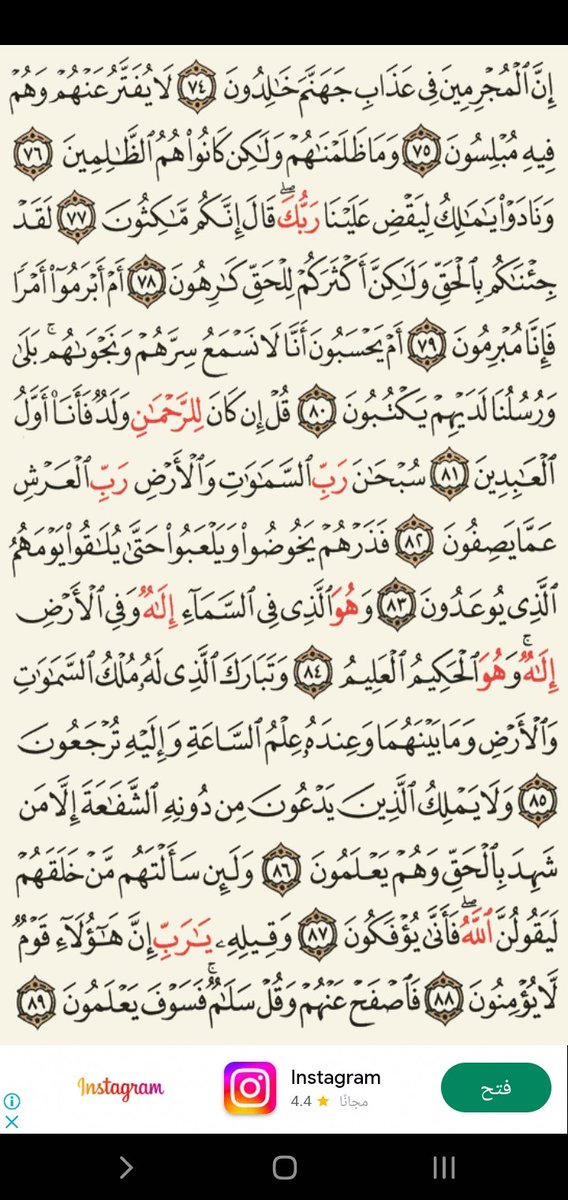 إِنَّ ٱلْمُجْرِمِينَ فِى عَذَابِ جَهَنَّمَ خَٰلِدُونَ ٧٤ لَا يُفَتَّرُ عَنْهُمْ وَهُمْ
فِيهِ مُبْلِسُونَ ٧٥ وَمَا ظَلَمْنَٰهُمْ وَلَٰكِن كَانُوا۟ هُمُ ٱلظَّٰلِمِينَ ٧٦
وَنَادَوْا۟ يَٰمَٰلِكُ لِيَقْضِ عَلَيْنَا رَبُّكَ ۖ قَالَ إِنَّكُم مَّٰكِثُونَ ٧٧ لَقَدْ
جِئْنَٰكُم بِٱلْحَقِّ وَلَٰكِنَّ أَكْثَرَكُمْ لِلْحَقِّ كَٰرِهُونَ ٧٨ أَمْ أَبْرَمُوٓا۟ أَمْرًا
فَإِنَّا مُبْرِمُونَ ٧٩ أَمْ يَحْسَبُونَ أَنَّا لَا نَسْمَعُ سِرَّهُمْ وَنَجْوَىٰهُم ۚ بَلَىٰ
وَرُسُلُنَا لَدَيْهِمْ يَكْتُبُونَ ٨٠ قُلْ إِن كَانَ لِلرَّحْمَٰنِ وَلَدٌ فَأَنَا۠ أَوَّلُ
ٱلْعَٰبِدِينَ ٨١ سُبْحَٰنَ رَبِّ ٱلسَّمَٰوَٰتِ وَٱلْأَرْضِ رَبِّ ٱلْعَرْشِ
عَمَّا يَصِفُونَ ٨٢ فَذَرْهُمْ يَخُوضُوا۟ وَيَلْعَبُوا۟ حَتَّىٰ يُلَٰقُوا۟ يَوْمَهُمُ
ٱلَّذِى يُوعَدُونَ ٨٣ وَهُوَ ٱلَّذِى فِى ٱلسَّمَآءِ إِلَٰهٌ وَفِى ٱلْأَرْضِ
إِلَٰهٌ ۚ وَهُوَ ٱلْحَكِيمُ ٱلْعَلِيمُ ٨٤ وَتَبَارَكَ ٱلَّذِى لَهُۥ مُلْكُ ٱلسَّمَٰوَٰتِ
وَٱلْأَرْضِ وَمَا بَيْنَهُمَا وَعِندَهُۥ عِلْمُ ٱلسَّاعَةِ وَإِلَيْهِ تُرْجَعُونَ
٨٥ وَلَا يَمْلِكُ ٱلَّذِينَ يَدْعُونَ مِن دُونِهِ ٱلشَّفَٰعَةَ إِلَّا مَن
شَهِدَ بِٱلْحَقِّ وَهُمْ يَعْلَمُونَ ٨٦ وَلَئِن سَأَلْتَهُم مَّنْ خَلَقَهُمْ
لَيَقُولُنَّ ٱللَّهُ ۖ فَأَنَّىٰ يُؤْفَكُونَ ٨٧ وَقِيلِهِۦ يَٰرَبِّ إِنَّ هَٰٓؤُلَآءِ قَوْمٌ
لَّا يُؤْمِنُونَ ٨٨ فَٱصْفَحْ عَنْهُمْ وَقُلْ سَلَٰمٌ ۚ فَسَوْفَ يَعْلَمُونَ ٨٩
Instagram
Instagram
4.4 ★ مجانًا
فتح